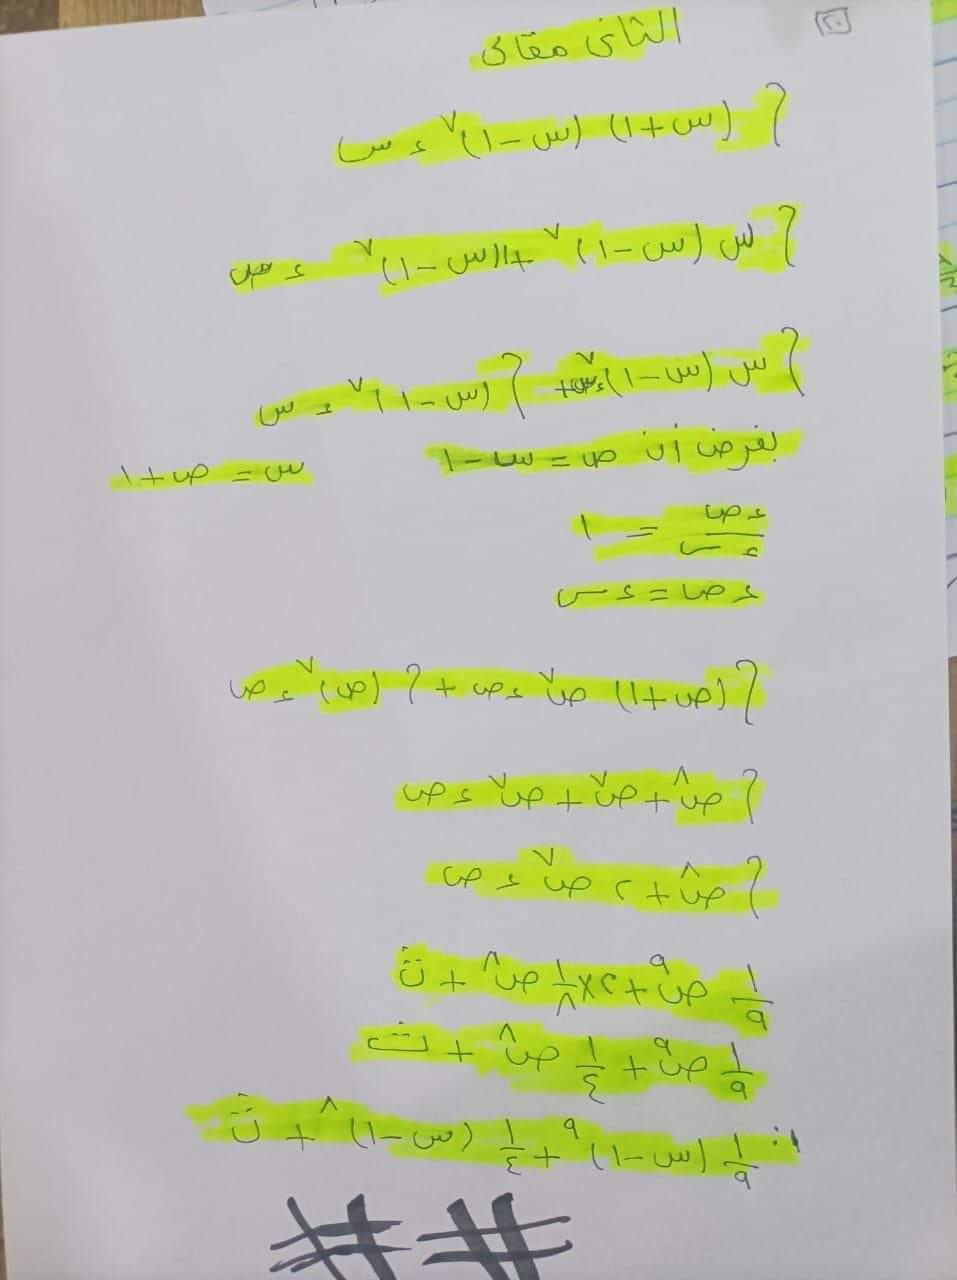 ٢٠
الثانى مقالى
∫ (س+١) (س-١)^٧ ء س
∫ س (س-١)^٧ +١(س-١)^٧ ء س
∫ س (س-١)^٧ ء س + ∫ (س-١)^٧ ء س
بفرض أن ص = س-١ س = ص+١
ء ص / ء س = ١
ء ص = ء س
∫ (ص+١) ص^٧ ء ص + ∫ (ص)^٧ ء ص
∫ ص^٨ + ص^٧ + ص^٧ ء ص
∫ ص^٨ + ٢ ص^٧ ء ص
١/٩ ص^٩ + ٢×١/٨ ص^٨ + ث
١/٩ ص^٩ + ١/٤ ص^٨ + ث
∴ ١/٩ (س-١)^٩ + ١/٤ (س-١)^٨ + ث
##